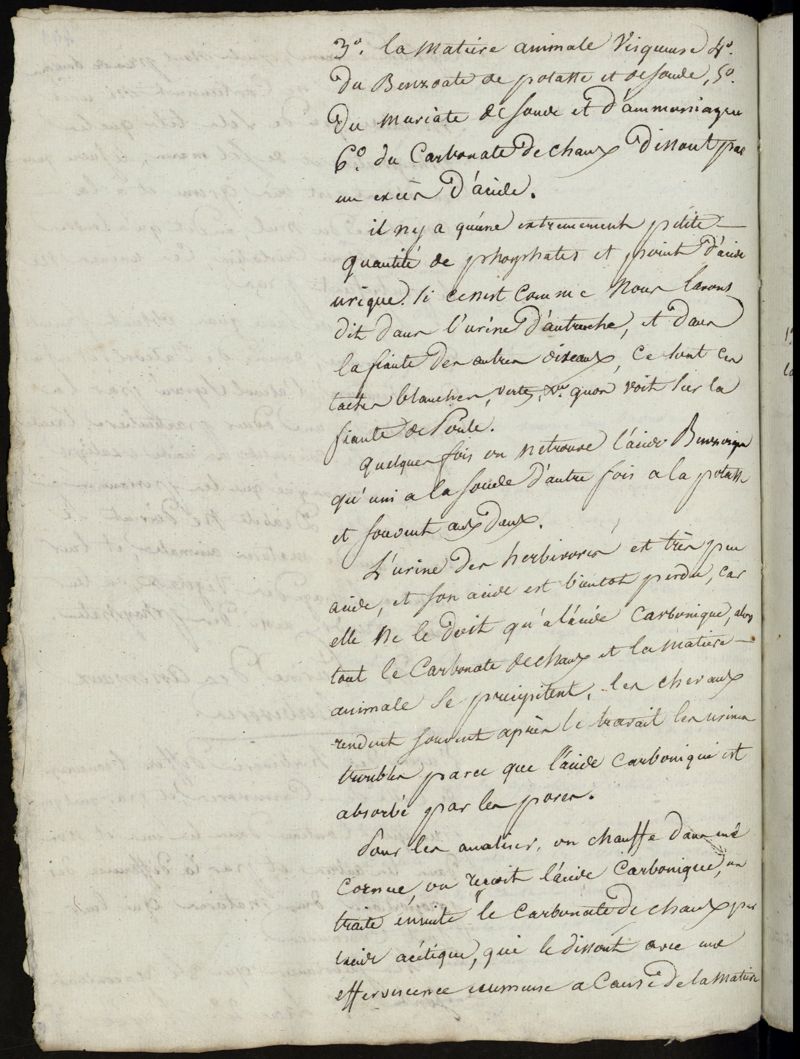 3º. la Matière animale Visqueuse 4º.
du Benzoate de potasse et de soude, 5º.
du Muriate de soude et d'ammoniaque
6º. du Carbonate de chaux dissout par
un excès d'acide.
il ny a qu'une extremement petite
quantité de phosphates et point d'acide
urique. si cenest comme Nous lavons
dit dans l'urine d'autruche, et dans
la fiante des autres oiseaux, ce sont ces
taches blanches, vertes, &c. quon voit sur la
fiante de Poule.
quelques fois on ne trouve l'acide Benzoique
qu'uni a la soude d'autre fois a la potasse
et souvent aux deux.
L'urine des herbivores est très peu
acide, et son acide est bientot perdu, car
elle Ne le doit qu'a l'acide carbonique, alors
tout le Carbonate de chaux et la Matière
animale se precipitent, les chevaux
rendent souvent après le travail les urines
troubles parce que l'acide carbonique est
absorbé par les pores.
Pour les analiser, on chauffe dans une
Cornue on reçoit l'acide Carbonique, on
traite ensuite le Carbonate de chaux par
lacide acétique, qui le dissout avec une
effervescence ecumeuse a Cause de la Matière